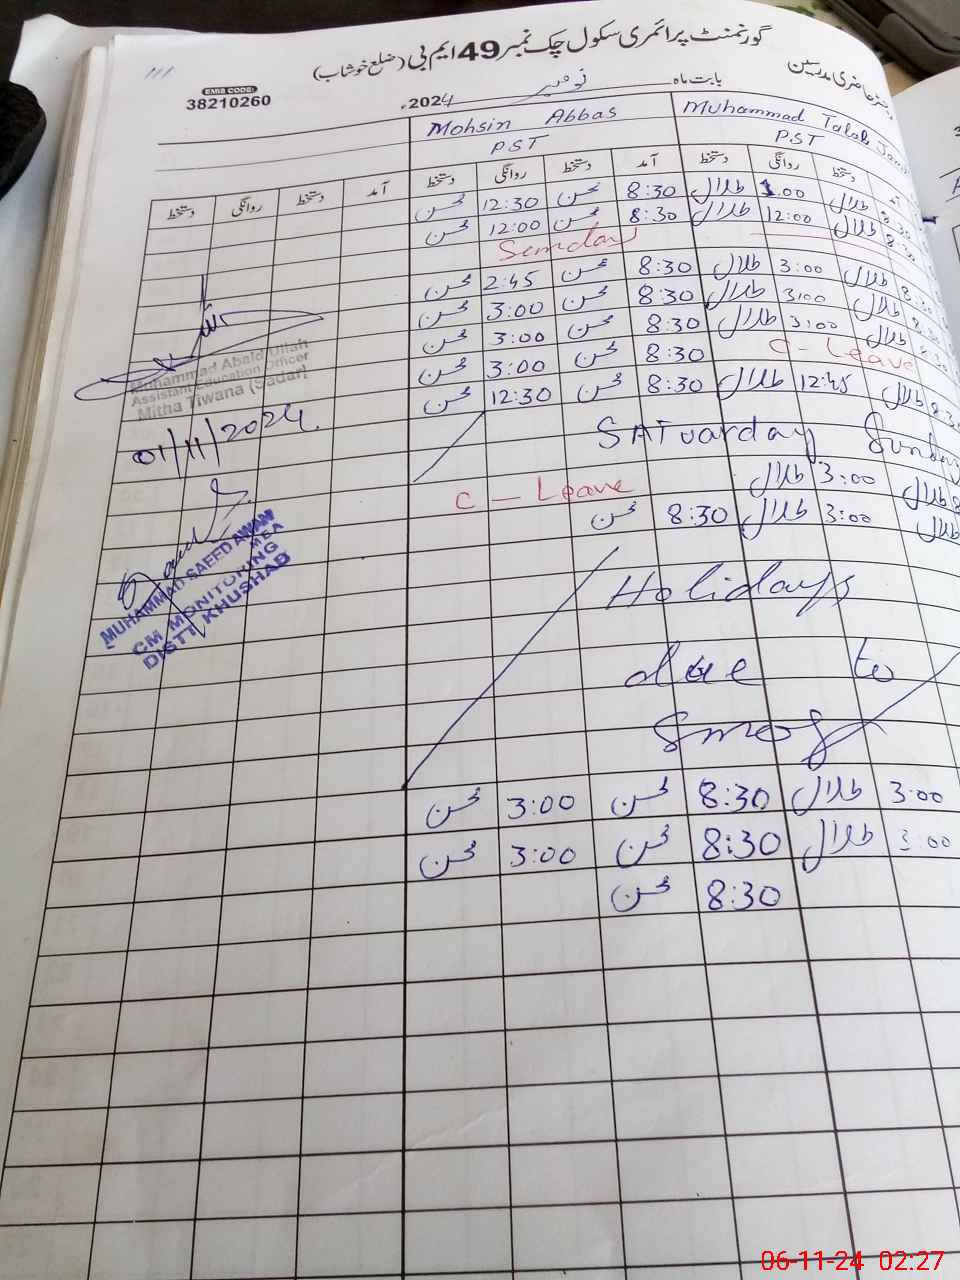 گورنمنٹ پرائمری سکول چک نمبر 49 ایم بی (ضلع خوشاب)
حاضری مدرسین
111
EMIS CODE:
38210260
بابت ماہ نومبر 2024ء
Mohsin Abbas Muhammad Talab
PST PST
دستخط آمد دستخط روانگی دستخط آمد دستخط روانگی دستخط روانگی دستخط آمد
طلال 1:00 طلال 8:30 محسن 12:30 محسن
طلال 12:00 طلال 8:30 محسن 12:00 محسن
Sunday
طلال 3:00 طلال 8:30 محسن 2:45 محسن
طلال 3:00 طلال 8:30 محسن 3:00 محسن
طلال 3:00 طلال 8:30 محسن 3:00 محسن
C - Leave 8:30 محسن 3:00 محسن
طلال 12:45 طلال 8:30 محسن 12:30 محسن
SATuarday Sunday
طلال 3:00 طلال C - Leave
طلال 3:00 طلال 8:30 محسن
Holidays
due to
Smog
3:00 طلال 8:30 محسن 3:00 محسن
3:00 طلال 8:30 محسن 3:00 محسن
8:30 محسن
Muhammad Abaid Ullah
Assistant Education Officer
Mitha Tiwana (Sadar)
01/11/2024
MUHAMMAD SAEED AWAN
MEA
CM MONITORING
DISTT KHUSHAB
06-11-24 02:27